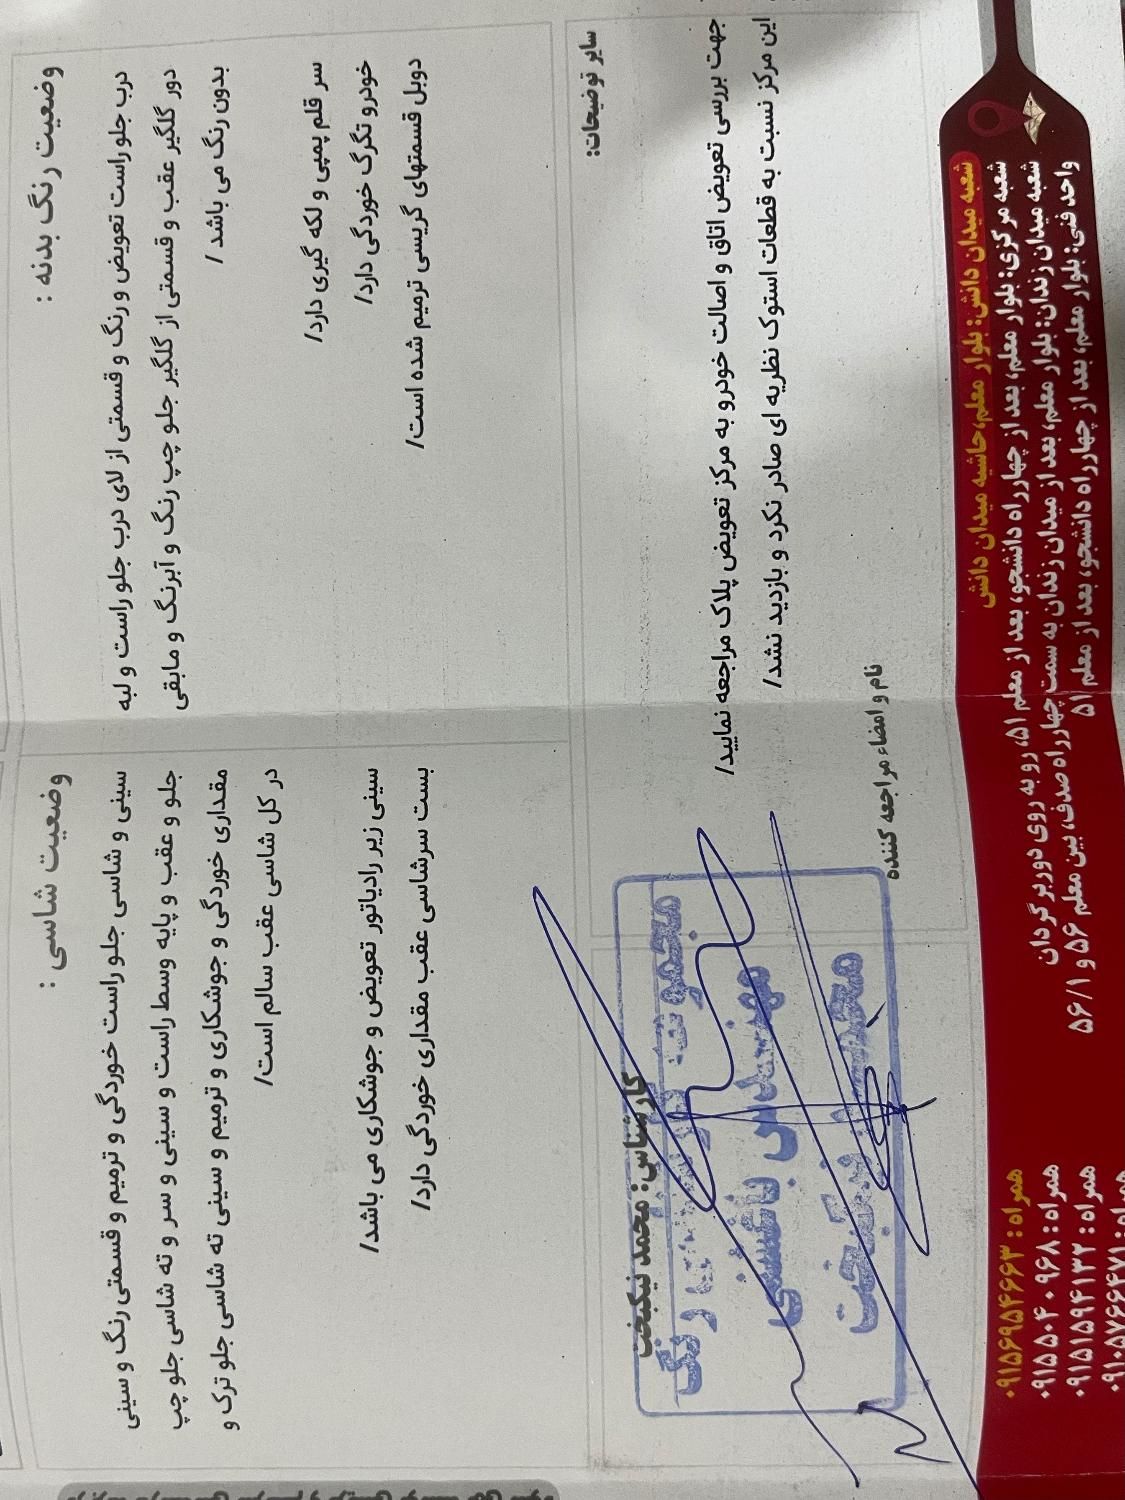 وضعیت رنگ بدنه :
درب جلو راست تعویض و رنگ و قسمتی از لای درب جلو راست و لبه
دور گلگیر عقب و قسمتی از گلگیر جلو چپ رنگ و آبرنگ و مابقی
بدون رنگ می باشد /
سر قلم پمپی و لکه گیری دارد/
خودرو تگرگ خوردگی دارد/
دوبل قسمتهای گریسی ترمیم شده است/
وضعیت شاسی :
سینی و شاسی جلو راست خوردگی و ترمیم و قسمتی رنگ و سینی
جلو و عقب و پایه وسط راست و سینی و سر و ته شاسی جلو چپ
مقداری خوردگی و جوشکاری و ترمیم و سینی ته شاسی جلو ترک و
در کل شاسی عقب سالم است/
سینی زیر رادیاتور تعویض و جوشکاری می باشد/
بست سرشاسی عقب مقداری خوردگی دارد/
سایر توضیحات:
جهت بررسی تعویض اتاق و اصالت خودرو به مرکز تعویض پلاک مراجعه نمایید/
این مرکز نسبت به قطعات استوک نظریه ای صادر نکرد و بازدید نشد/
نام و امضاء مراجعه کننده
کارشناس: محمد نیکبخت
مهندس بافشی
شعبه میدان دانش: بلوار معلم، حاشیه میدان دانش
شعبه مرکزی: بلوار معلم، بعد از چهارراه دانشجو، بعد از معلم ۵۱، رو به روی دوربرگردان
شعبه میدان زندان: بلوار معلم، بعد از میدان زندان به سمت چهارراه صدف، بین معلم ۵۶ و ۵۶/۱
واحد فنی: بلوار معلم، بعد از چهارراه دانشجو، بعد از معلم ۵۱
همراه : ۰۹۱۵۶۹۵۴۶۶۳
همراه : ۰۹۱۵۵۰۴۰۹۶۸
همراه : ۰۹۱۵۱۵۹۴۱۳۲
همراه : ۰۹۱۰۵۷۶۶۴۷۱